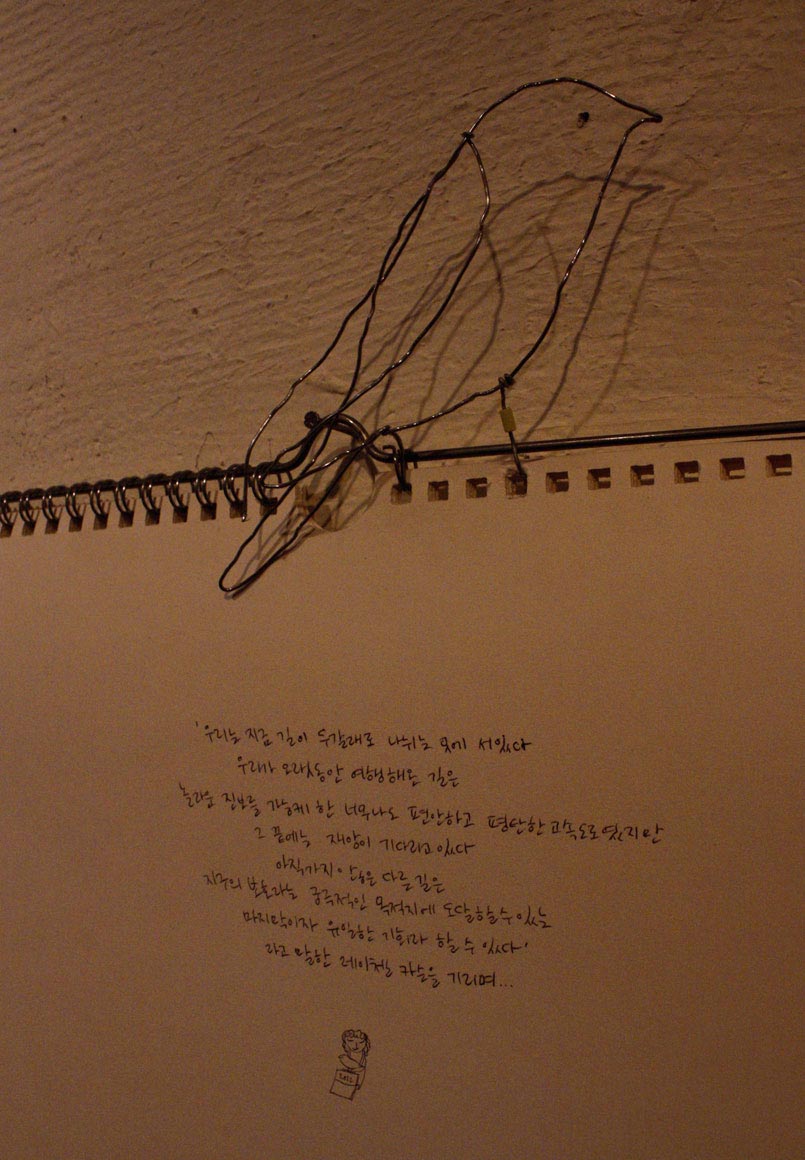 '우리는 지금 길이 두갈래로 나뉘는 곳에 서있다
우리가 오랫동안 여행해온 길은
놀라운 진보를 가능케 한 너무나도 편안하고 평탄한 고속도로였지만
그 끝에는 재앙이 기다리고 있다
아직 가지 않은 다른 길은
지구의 보호라는 궁극적인 목적지에 도달할 수 있는
마지막이자 유일한 기회라 할 수 있다'
라고 말한 레이첼 카슨을 기리며...